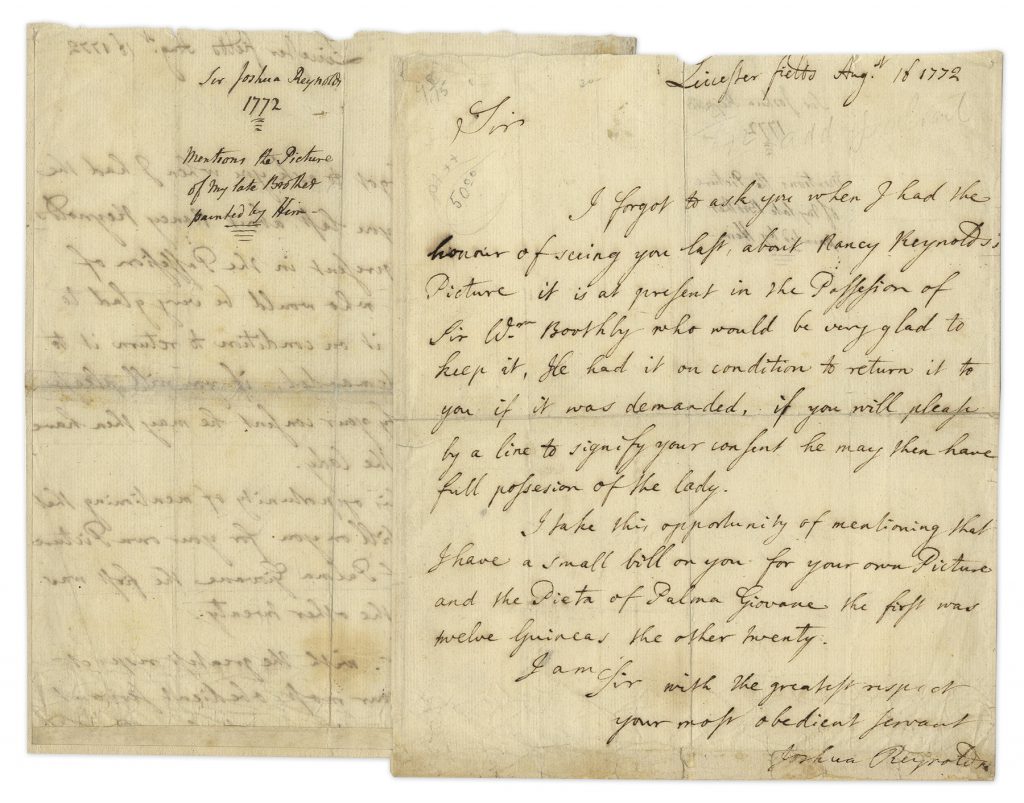 Sir Joshua Reynolds
1772
Mentions the Picture
of My late Brother
painted by Him
Leicester fields Aug.st 16 1772
Sir
I forgot to ask you when I had the
honour of seeing you last, about Nancy Reynolds's
Picture it is at present in the Possession of
Sir Wm Boothby who would be very glad to
keep it, He had it on condition to return it to
you if it was demanded, if you will please
by a line to signify your consent he may then have
full possesion of the lady.
I take this opportunity of mentioning that
I have a small bill on you for your own Picture
and the Pieta of Palma Giovane the first was
twelve Guineas the other twenty.
I am Sir with the greatest respect
your most obedient servant
Joshua Reynolds